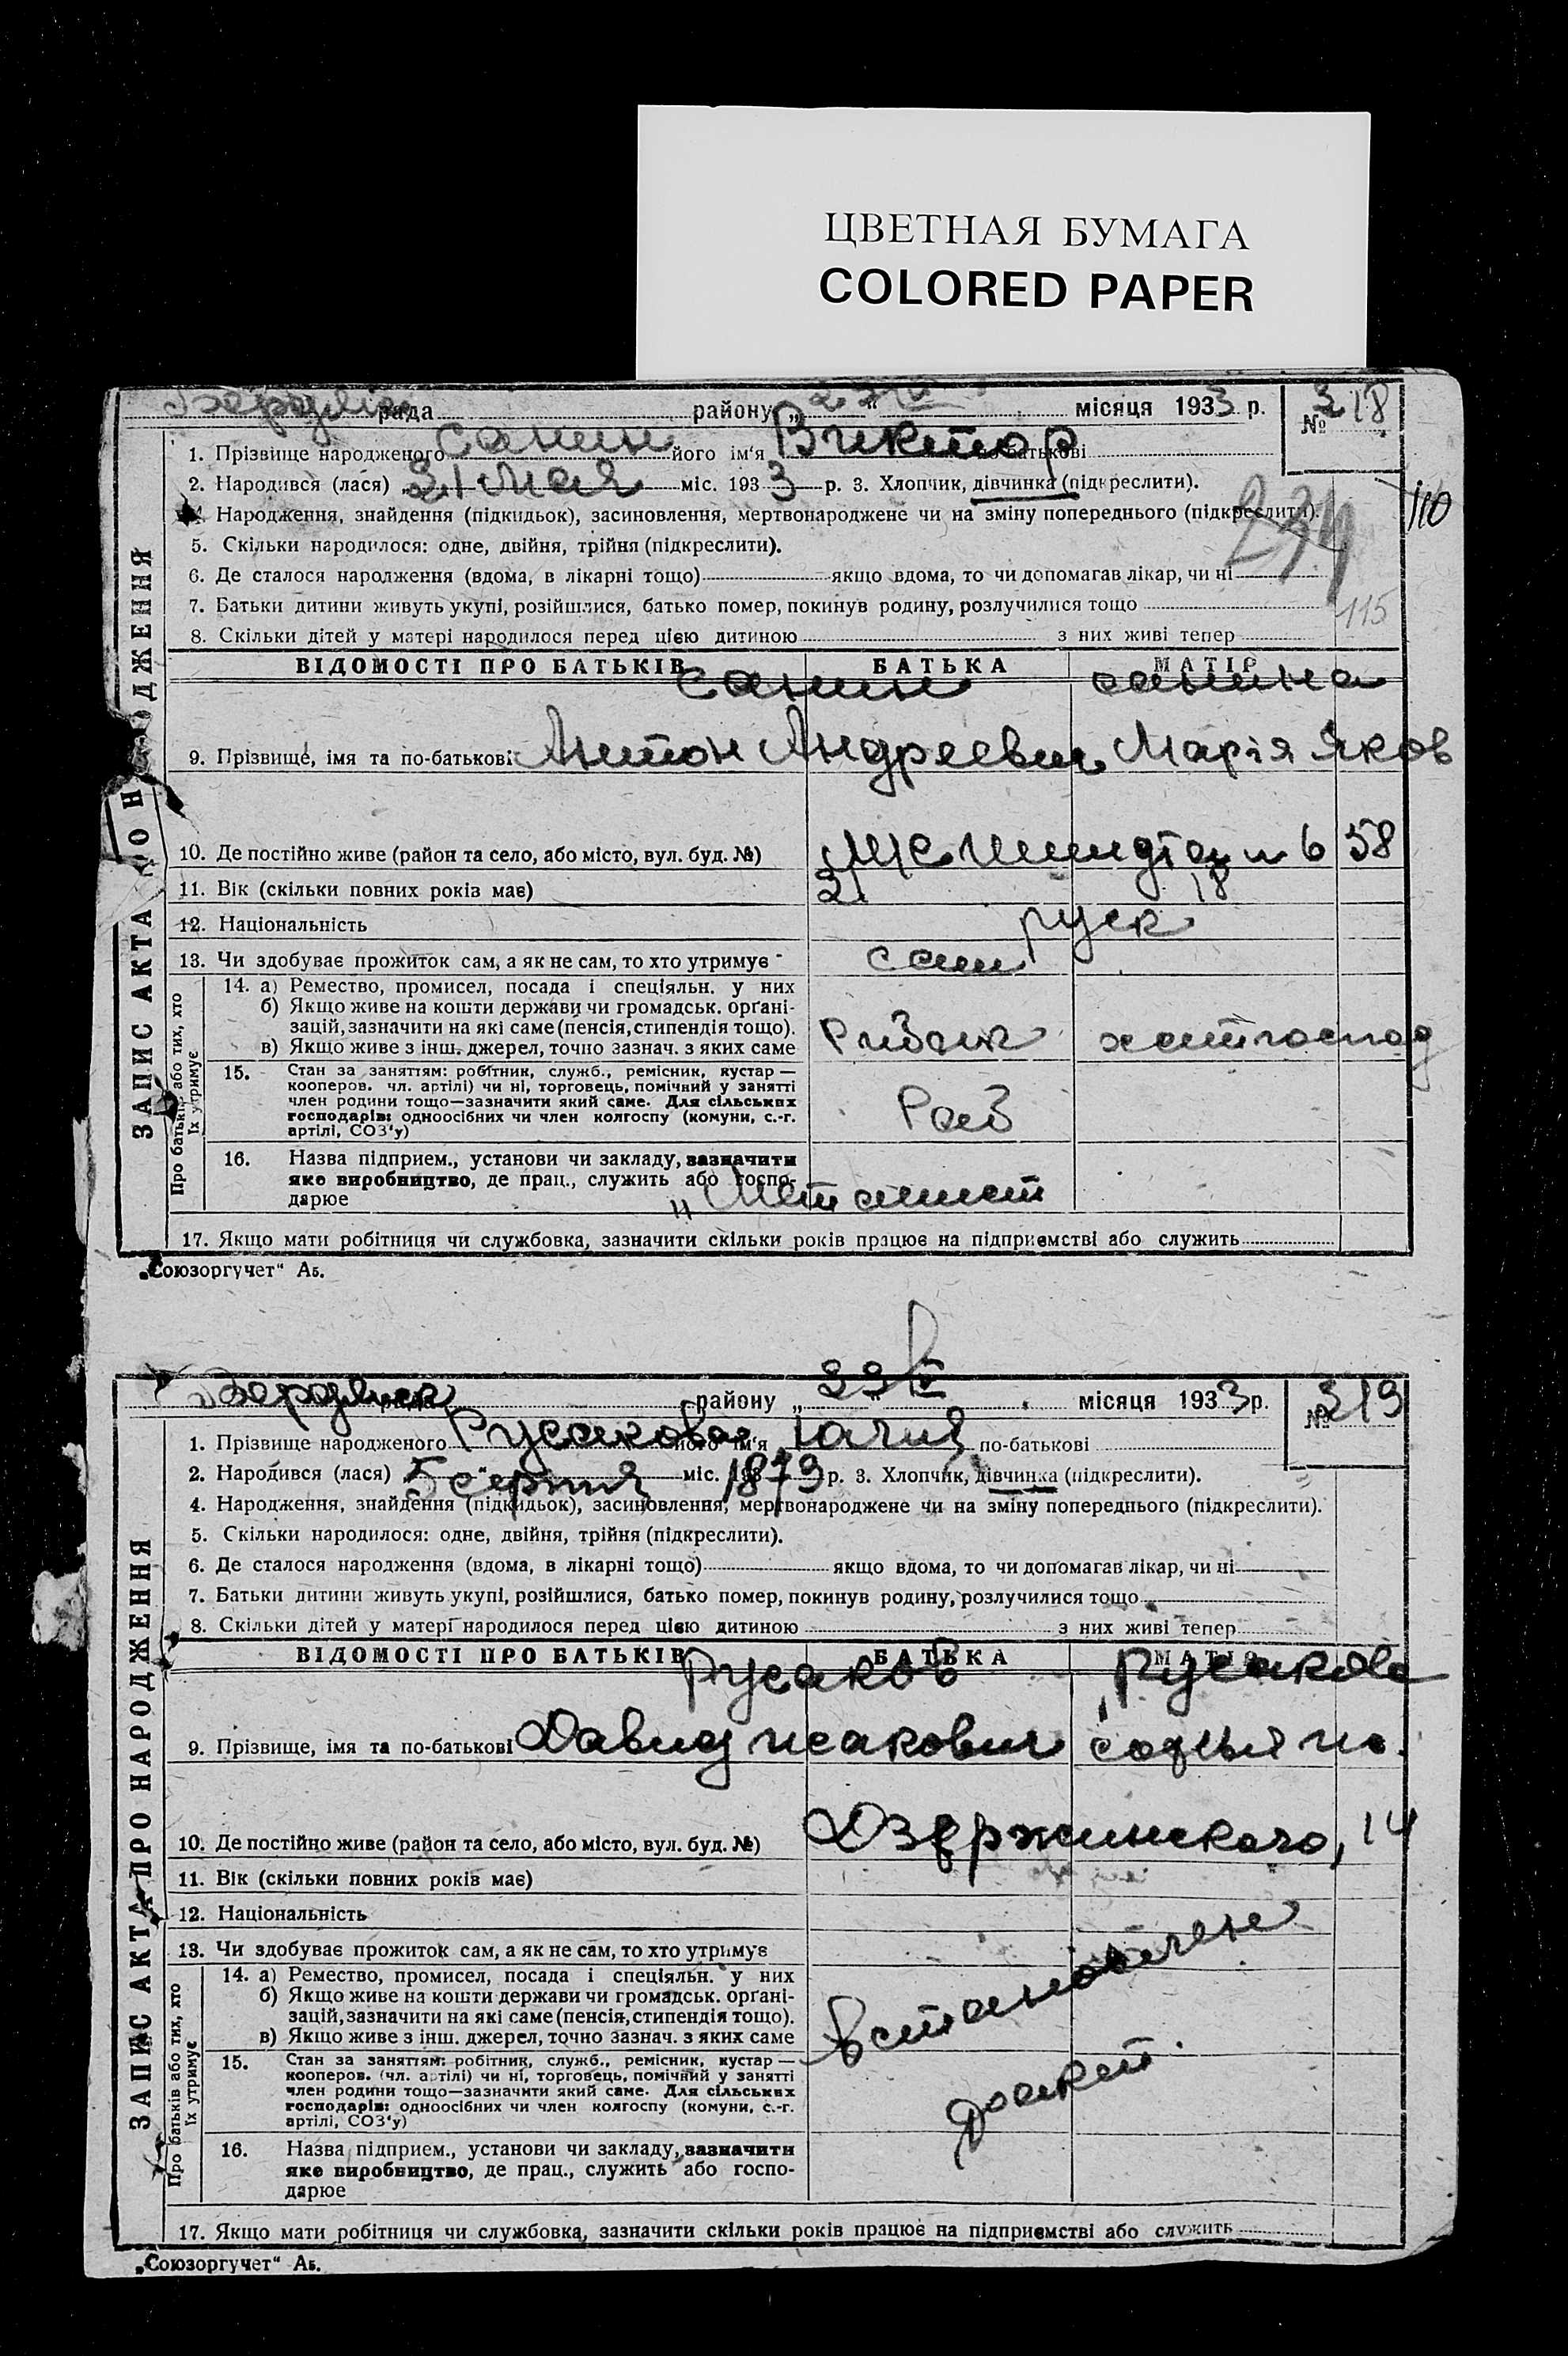 ЦВЕТНАЯ БУМАГА
COLORED PAPER
рада району „ 27 “ місяця 1933 р. № 318
1. Прізвище народженого Санин його ім'я Виктор по-батькові
2. Народився (лася) „21 Мая міс. 1933 р. 3. Хлопчик, дівчинка (підкреслити).
Народження, знайдення (підкидьок), засиновлення, мертвонароджене чи на зміну попереднього (підкреслити).
110
234
5. Скільки народилося: одне, двійня, трійня (підкреслити).
6. Де сталося народження (вдома, в лікарні тощо) якщо вдома, то чи допомагав лікар, чи ні
7. Батьки дитини живуть укупі, розійшлися, батько помер, покинув родину, розлучилися тощо
115
8. Скільки дітей у матері народилося перед цією дитиною з них живі тепер
ВІДОМОСТІ ПРО БАТЬКІВ БАТЬКА МАТІР
Санин Санина
9. Прізвище, імя та по-батькові Антон Андреевич Марія Яков
10. Де постійно живе (район та село, або місто, вул. буд. №) 58
11. Вік (скільки повних років має) 21 18
12. Національність руск
13. Чи здобуває прожиток сам, а як не сам, то хто утримує сам
14. а) Ремество, промисел, посада і спеціяльн. у них
б) Якщо живе на кошти держави чи громадськ. орґані-
зацій, зазначити на які саме (пенсія, стипендія тощо).
в) Якщо живе з інш. джерел, точно зазнач. з яких саме хатгоспод
15. Стан за заняттям: робітник, служб., ремісник, кустар —
кооперов. чл. артілі) чи ні, торговець, помічний у занятті
член родини тощо—зазначити який саме. Для сільських
господарів: одноосібних чи член колгоспу (комуни, с.-г.
артілі, СОЗ'у)
Раб
16. Назва підприєм., установи чи закладу, зазначити
яке виробництво, де прац., служить або госпо-
дарює
17. Якщо мати робітниця чи службовка, зазначити скільки років працює на підприємстві або служить
Про батьків або тих, хто їх утримує
ЗАПИС АКТА ПРО Н ОДЖЕННЯ
„Союзоргучет“ Аб.
Бердянск району „ 29 V місяця 1933 р. № 319
1. Прізвище народженого Русакова його ім'я по-батькові
2. Народився (лася) 5 серпня міс. 1879 р. 3. Хлопчик, дівчинка (підкреслити).
4. Народження, знайдення (підкидьок), засиновлення, мертвонароджене чи на зміну попереднього (підкреслити).
5. Скільки народилося: одне, двійня, трійня (підкреслити).
6. Де сталося народження (вдома, в лікарні тощо) якщо вдома, то чи допомагав лікар, чи ні
7. Батьки дитини живуть укупі, розійшлися, батько помер, покинув родину, розлучилися тощо
8. Скільки дітей у матері народилося перед цією дитиною з них живі тепер
ВІДОМОСТІ ПРО БАТЬКІВ БАТЬКА МАТІР
Русаков Русакова
9. Прізвище, імя та по-батькові Давид исакович
10. Де постійно живе (район та село, або місто, вул. буд. №) Дзержинского, 14
11. Вік (скільки повних років має)
12. Національність
13. Чи здобуває прожиток сам, а як не сам, то хто утримує
14. а) Ремество, промисел, посада і спеціяльн. у них
б) Якщо живе на кошти держави чи громадськ. орґані-
зацій, зазначити на які саме (пенсія, стипендія тощо).
в) Якщо живе з інш. джерел, точно зазнач. з яких саме
15. Стан за заняттям: робітник, служб., ремісник, кустар —
кооперов. (чл. артілі) чи ні, торговець, помічний у занятті
член родини тощо—зазначити який саме. Для сільських
господарів: одноосібних чи член колгоспу (комуни, с.-г.
артілі, СОЗ'у)
16. Назва підприєм., установи чи закладу, зазначити
яке виробництво, де прац., служить або госпо-
дарює
17. Якщо мати робітниця чи службовка, зазначити скільки років працює на підприємстві або служить
Про батьків або тих, хто їх утримує
ЗАПИС АКТА ПРО НАРОДЖЕННЯ
„Союзоргучет“ Аб.